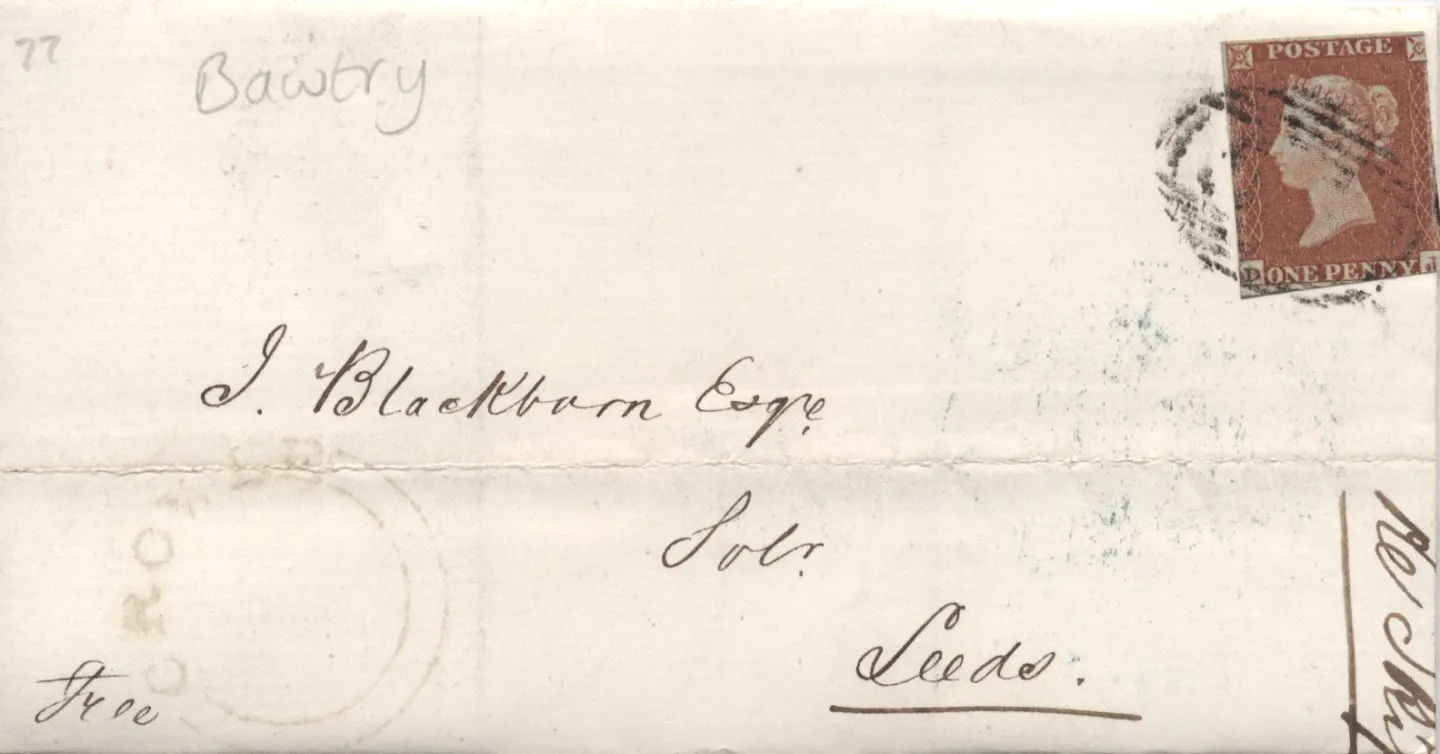 77
Bawtry
POSTAGE
ONE PENNY
D J
J. Blackburn Esqre
Solr.
Leeds.
Free
CRO